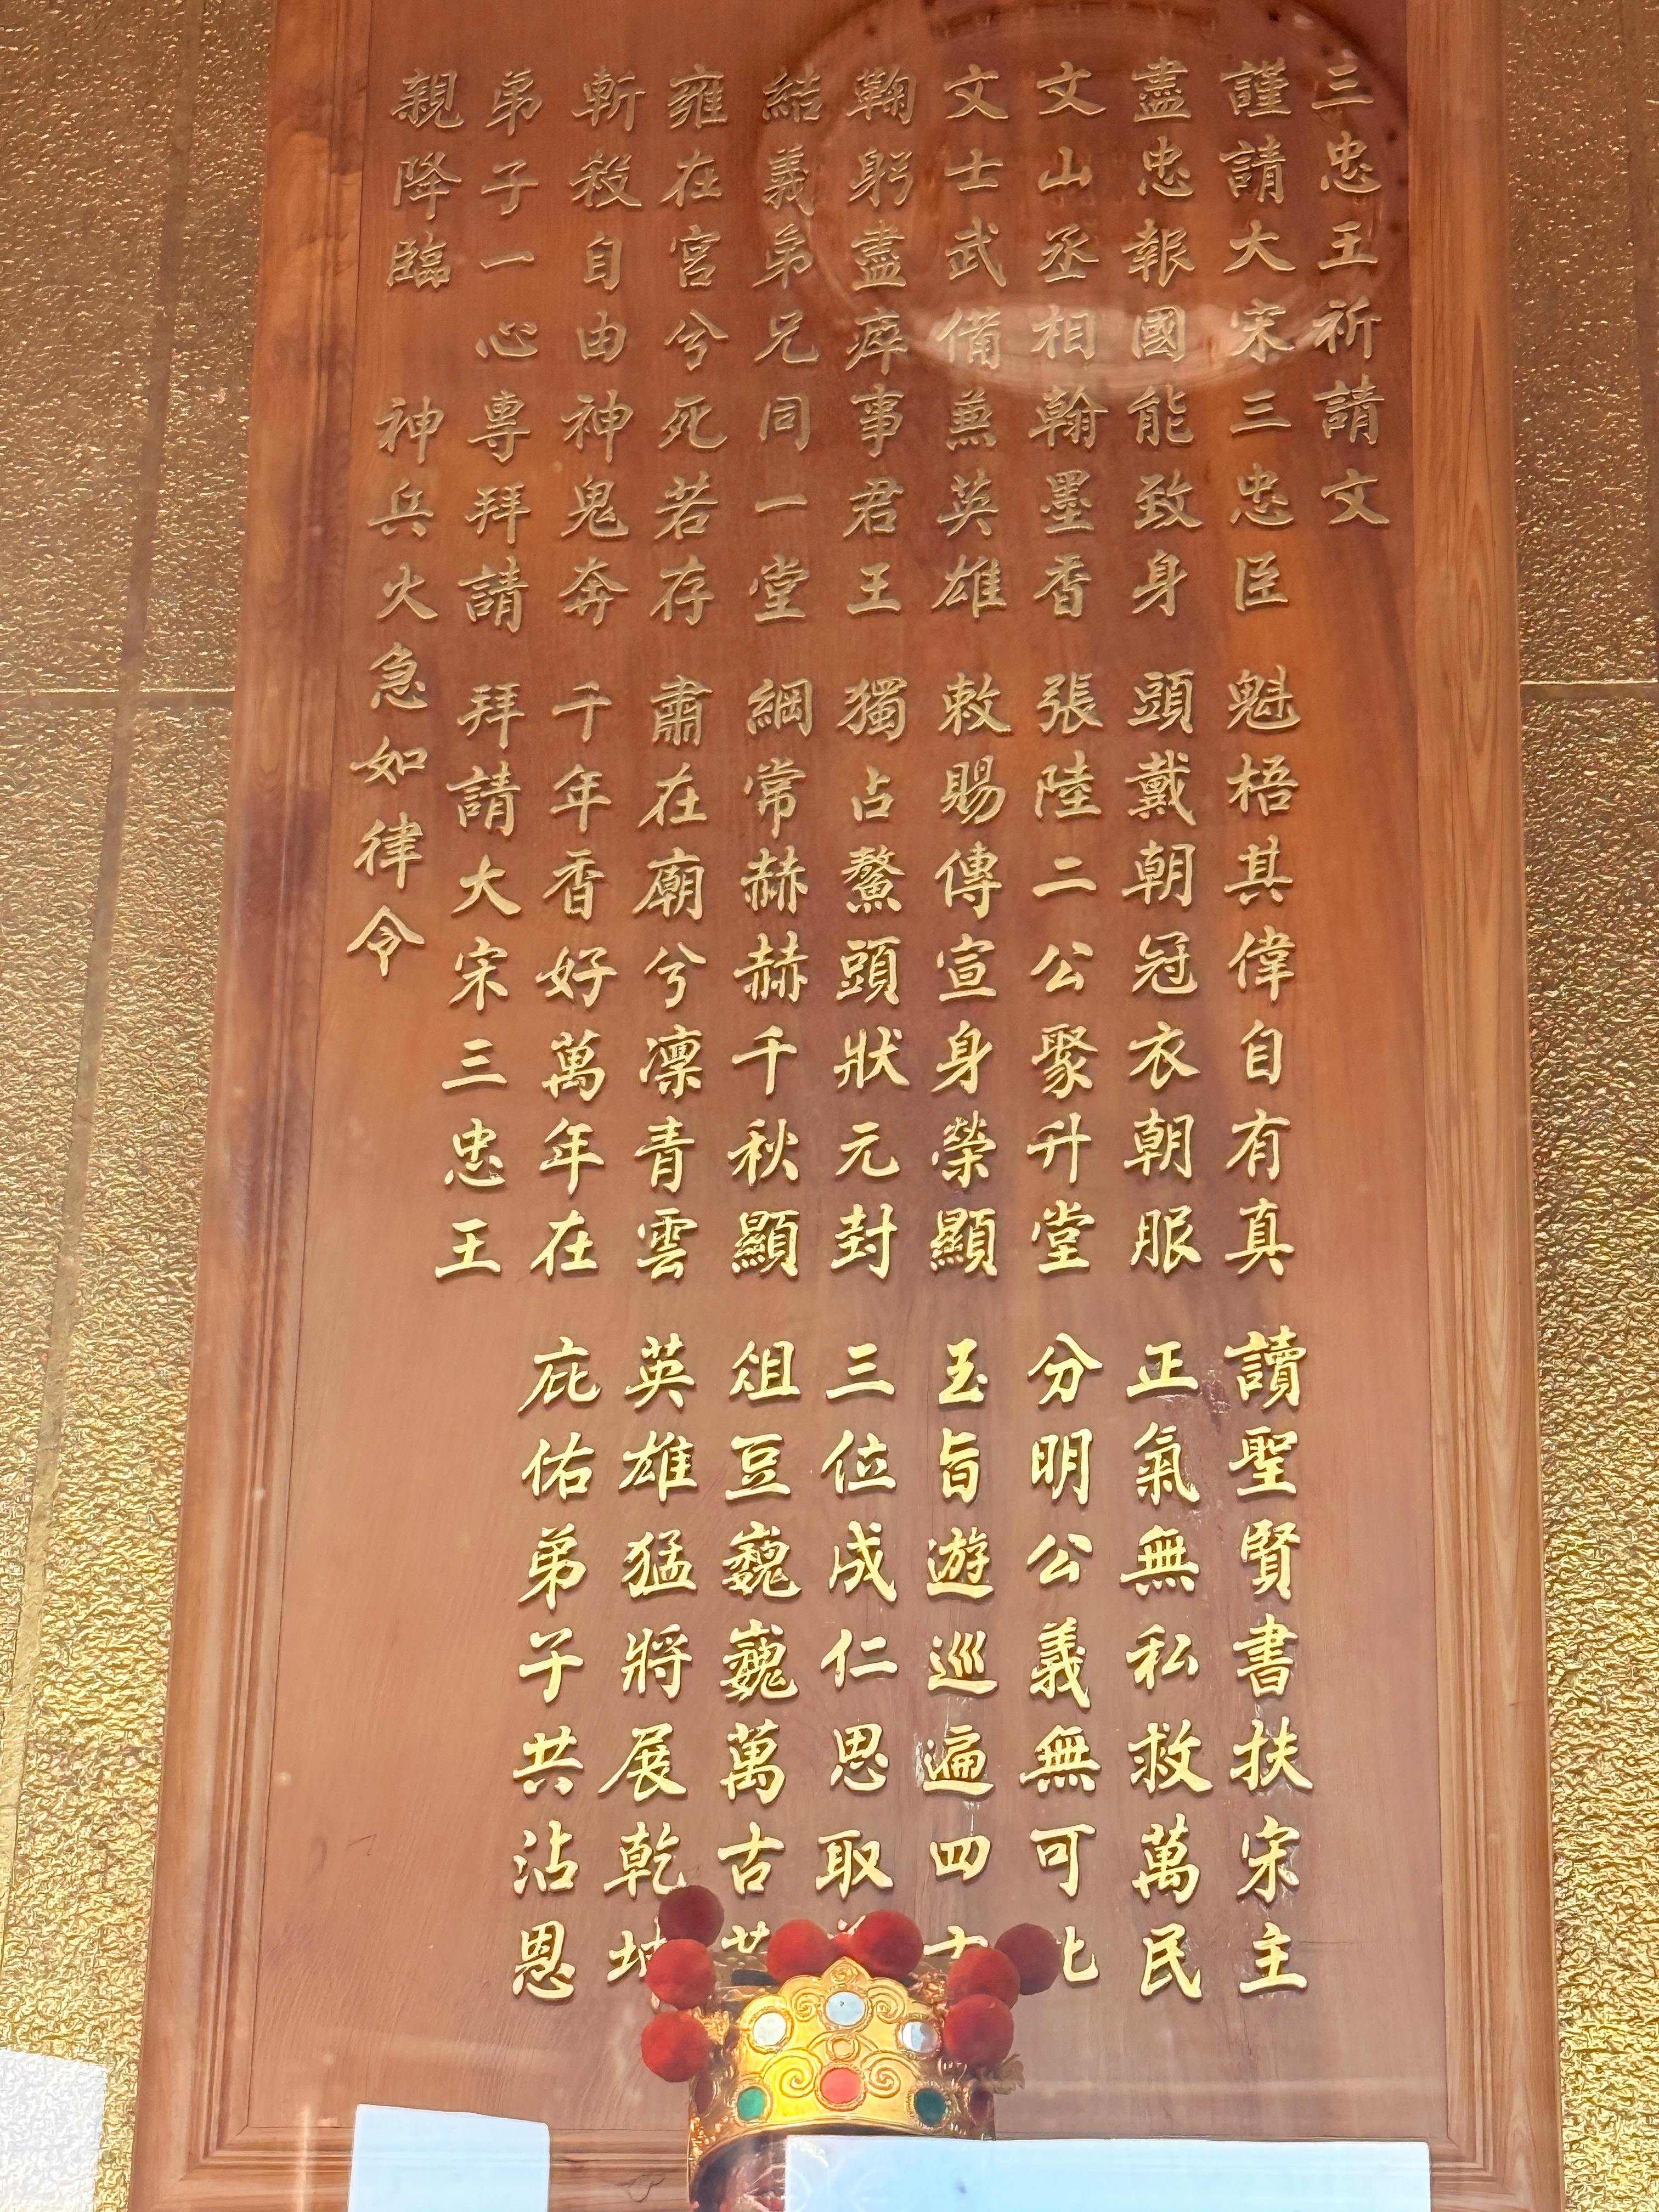 三忠王祈請文
謹請大宋三忠臣 魁梧其偉自有真 讀聖賢書扶宋主
盡忠報國能致身 頭戴朝冠衣朝服 正氣無私救萬民
文山丞相翰墨香 張陸二公聚升堂 分明公義無可比
文士武備兼英雄 敕賜傳宣身榮顯 玉旨遊巡遍四
鞠躬盡瘁事君王 獨占鰲頭狀元封 三位成仁思取
結義弟兄同一堂 綱常赫赫千秋顯 俎豆巍巍萬古
雍在宮兮死若存 肅在廟兮凜青雲 英雄猛將展乾坤
斬殺自由神鬼奔 千年香好萬年在 庇佑弟子共沾恩
弟子一心專拜請 拜請大宋三忠王
親降臨 神兵火急如律令